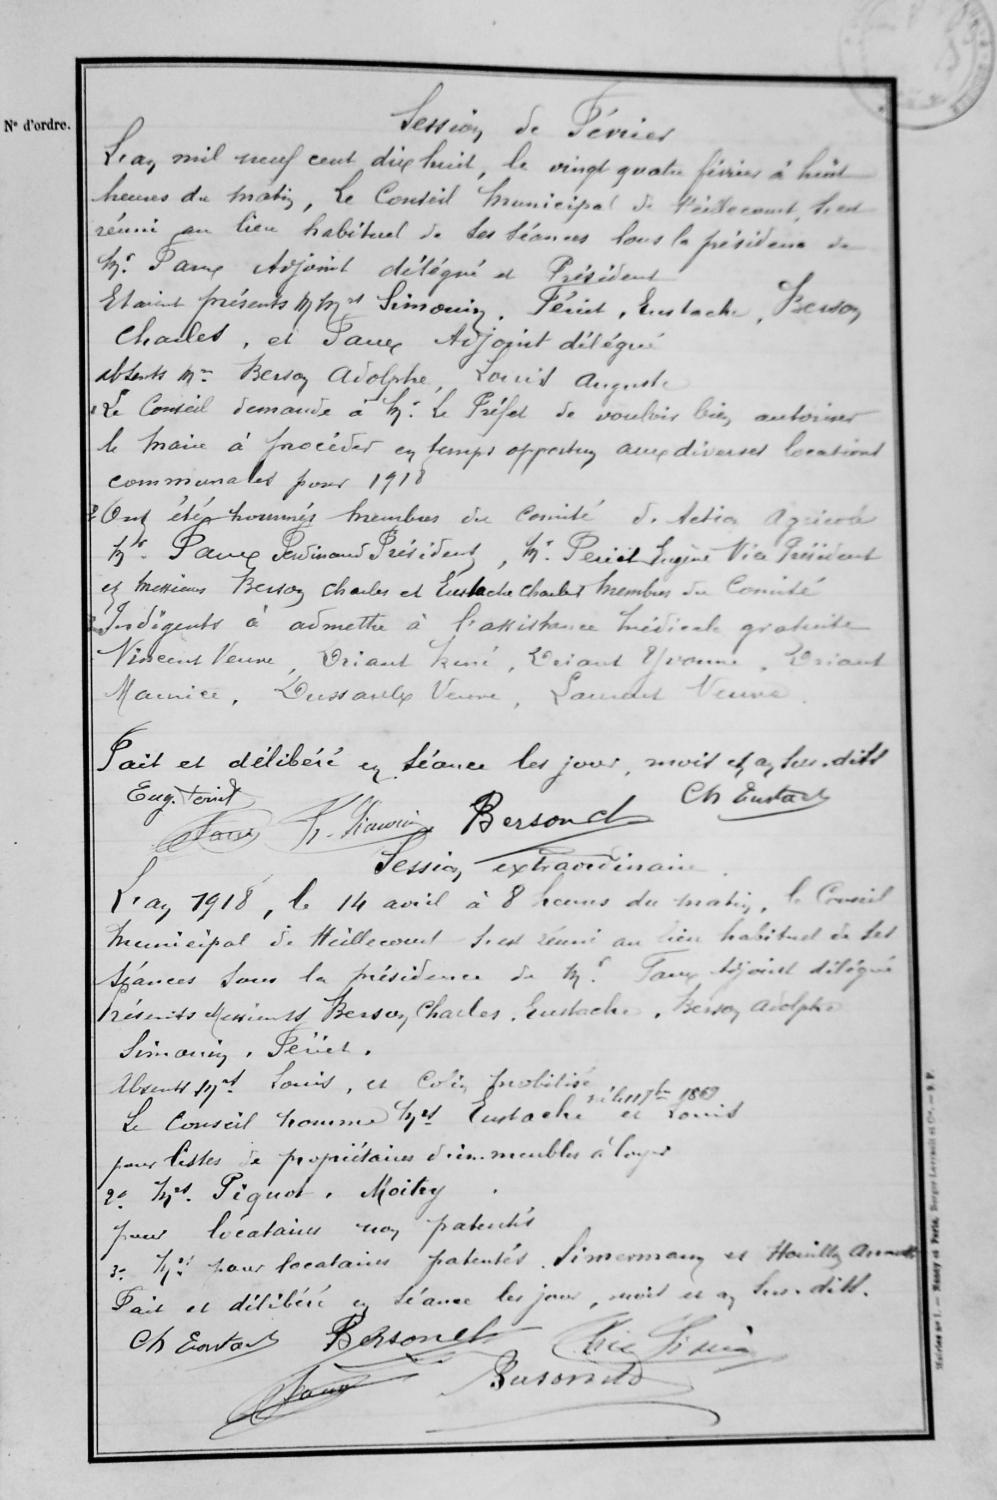 Nº d'ordre.
Session de Février
L'an mil neuf cent dix huit, le vingt quatre février à huit
heures du matin, Le Conseil Municipal de Heillecourt, s'est
réuni au lieu habituel de ses séances sous la présidence de
Mr. Faux Adjoint délégué et Président
Etaient présents MMrs Simonin, Périet, Eustache, Berson
Charles, et Faux Adjoint délégué
absents Mrs Berson Adolphe, Louis Auguste
Le Conseil demande à Mr. Le Préfet de vouloir bien autoriser
le Maire à procéder en temps opportun aux diverses locations
communales pour 1918
2º Ont été nommés membres du Comité d'Action Agricole
Mr. Faux Ferdinand Président, Mr. Periet Eugène Vice Président
et Messieurs Berson Charles et Eustache Charles Membres du Comité
Indigents à admettre à l'assistance médicale gratuite
Vincent Veuve, Driant René, Driant Yvonne, Driant
Maurice, Dussaulx Veuve, Laurent Veuve.
Fait et délibéré en séance les jour, mois et an sus-dits
Eug. Ch Eustache
Faux Simonin Berson Ch
Session extraordinaire.
L'an 1918, le 14 avril à 8 heures du matin, le Conseil
Municipal de Heillecourt s'est réuni au lieu habituel de ses
séances sous la présidence de Mr. Faux Adjoint délégué
Présents Messieurs Berson Charles, Eustache, Berson Adolphe
Simonin, Périet.
Absents Mrs Louis, et Colin mobilisé
Le Conseil nomme Mrs Eustache et Louis
pour listes de propriétaires d'immeubles à loyer
2º Mrs. Piquot, Moitry
pour locataires non patentés
3º Mrs pour locataires patentés, Simermann et
Fait et délibéré en séance les jour, mois et an sus-dits.
Ch Eustache Berson Ch Simonin
Faux Berson
Nancy et Paris, Berger-Levrault et Cie.